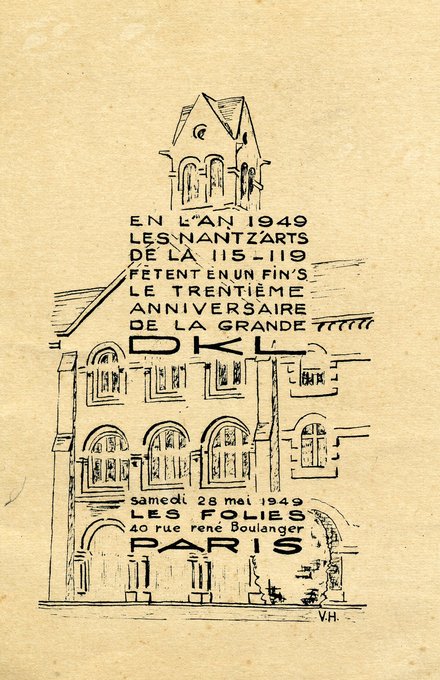 EN L'AN 1949
LES NANTZ'ARTS
DE LA 115-119
FÊTENT EN UN FIN'S
LE TRENTIÈME
ANNIVERSAIRE
DE LA GRANDE
DKL
samedi 28 mai 1949
LES FOLIES
40 rue rené Boulanger
PARIS
V.H.